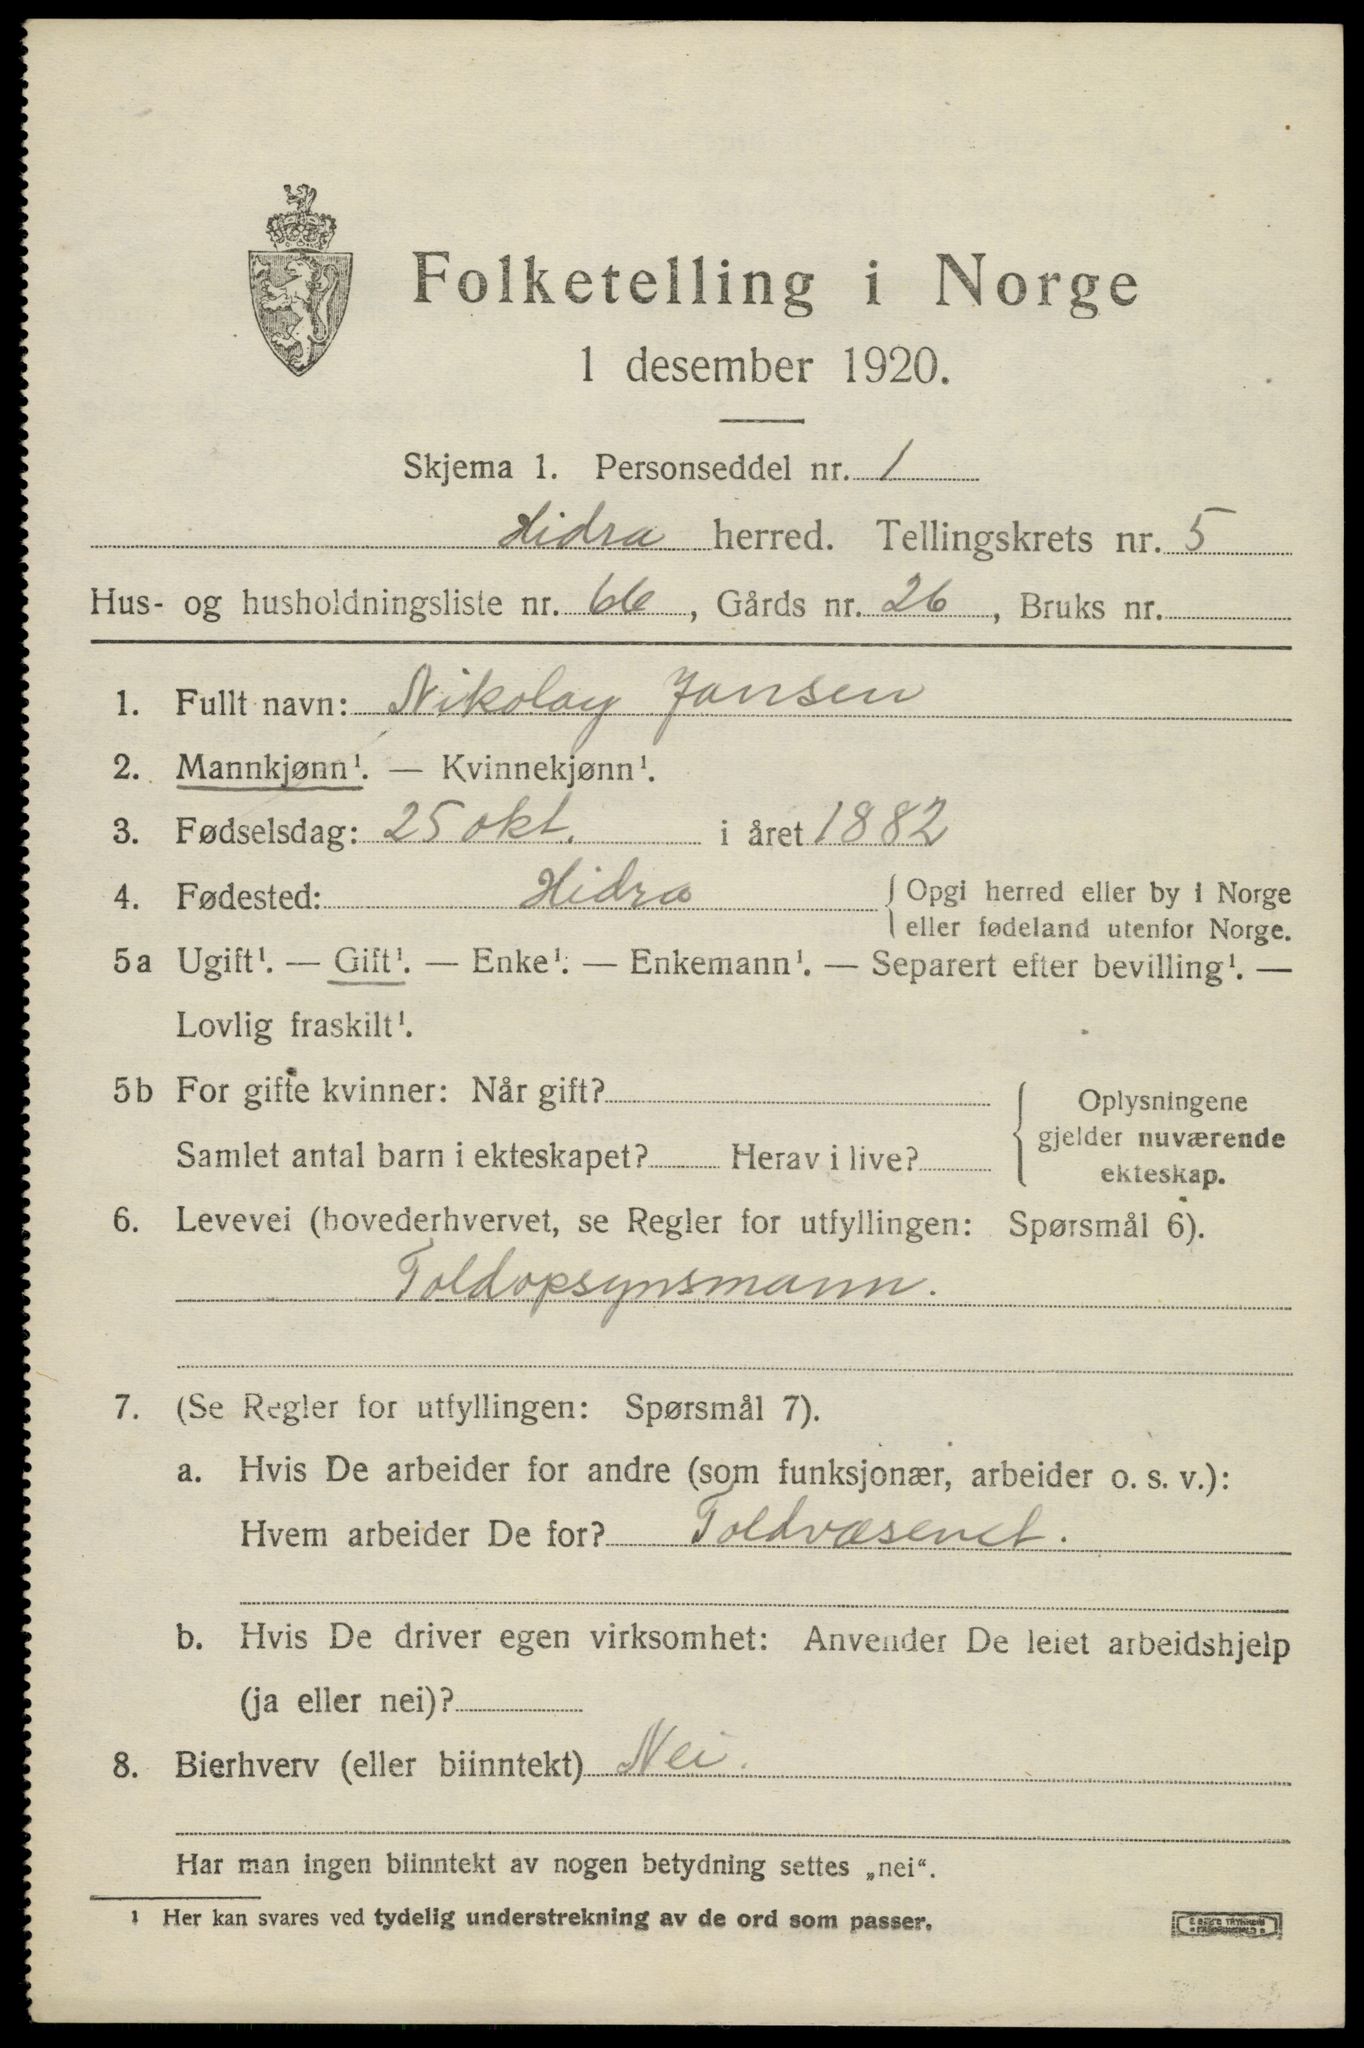 Folketelling i Norge
1 desember 1920.
Skjema 1. Personseddel nr. 1
Hidra herred. Tellingskrets nr. 5
Hus- og husholdningsliste nr. 66, Gårds nr. 26, Bruks nr.
1. Fullt navn: Nikolay Jansen
2. Mannkjønn¹. — Kvinnekjønn¹.
3. Fødselsdag: 25 okt. i året 1882
4. Fødested: Hidra { Opgi herred eller by i Norge
eller fødeland utenfor Norge.
5a Ugift¹. — Gift¹. — Enke¹. — Enkemann¹. — Separert efter bevilling¹. —
Lovlig fraskilt¹.
5b For gifte kvinner: Når gift?
Samlet antal barn i ekteskapet? Herav i live?
Oplysningene
gjelder nuværende
ekteskap.
6. Levevei (hovederhvervet, se Regler for utfyllingen: Spørsmål 6).
Toldopsynsmann.
7. (Se Regler for utfyllingen: Spørsmål 7).
a. Hvis De arbeider for andre (som funksjonær, arbeider o. s. v.):
Hvem arbeider De for? Toldvæsenet.
b. Hvis De driver egen virksomhet: Anvender De leiet arbeidshjelp
(ja eller nei)?
8. Bierhverv (eller biinntekt) Nei.
Har man ingen biinntekt av nogen betydning settes „nei“.
¹ Her kan svares ved tydelig understrekning av de ord som passer.